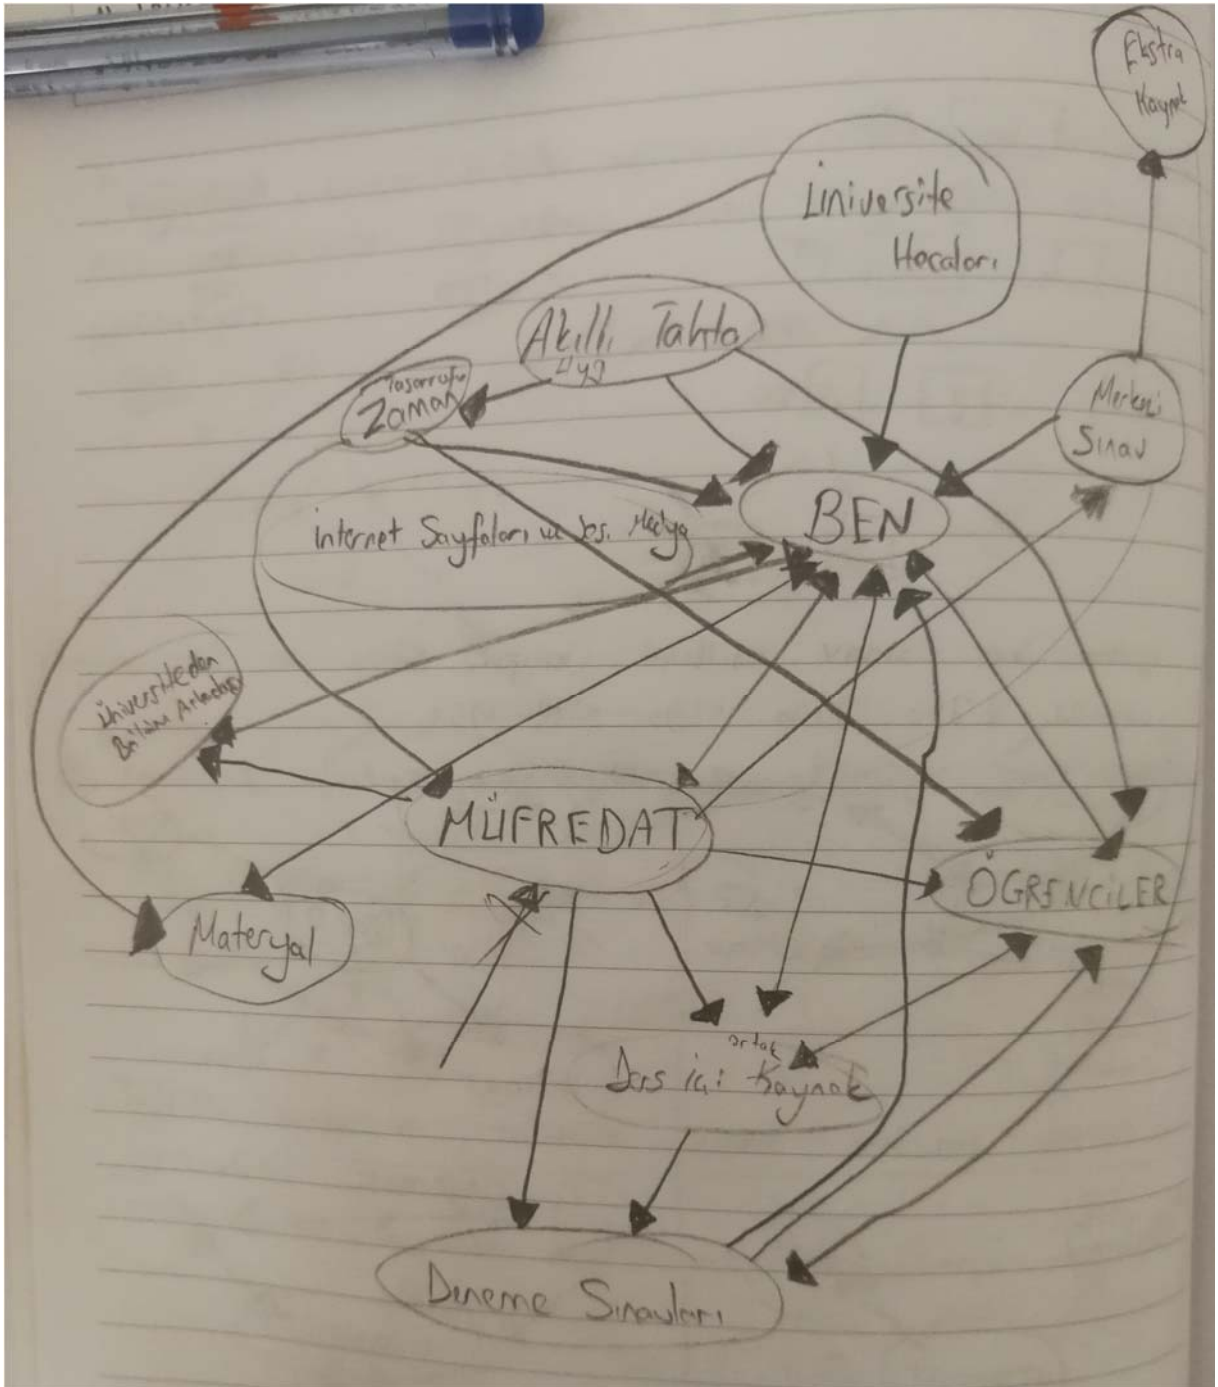 Ekstra
Kaynak
Üniversite
Hocaları
Akıllı Tahta
Tasarrufu
Zaman
Merkezi
Sınav
BEN
İnternet Sayfaları ve Sos. Medya
Üniversiteden
Bölüm Arkadaşı
MÜFREDAT
ÖĞRENCİLER
Materyal
ortak
Ders içi Kaynak
Deneme Sınavları